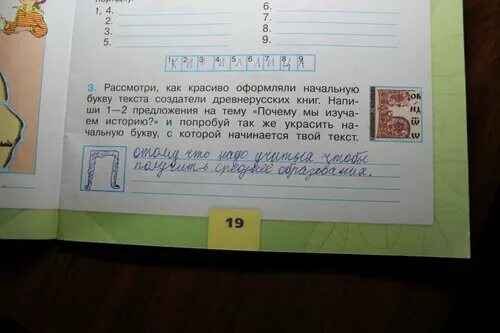 порядку.
1, 4.
2.
3.
5.
6.
7.
8.
9.
1К 2И 3Р 4И 5Л 6Л 7И 8Ц 9А
3. Рассмотри, как красиво оформляли начальную
букву текста создатели древнерусских книг. Напи-
ши 1—2 предложения на тему «Почему мы изуча-
ем историю?» и попробуй так же украсить на-
чальную букву, с которой начинается твой текст.
П отому что надо учиться чтобы
получить среднее образования.
19